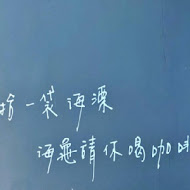 拾一袋海漂
海龜請你喝咖啡